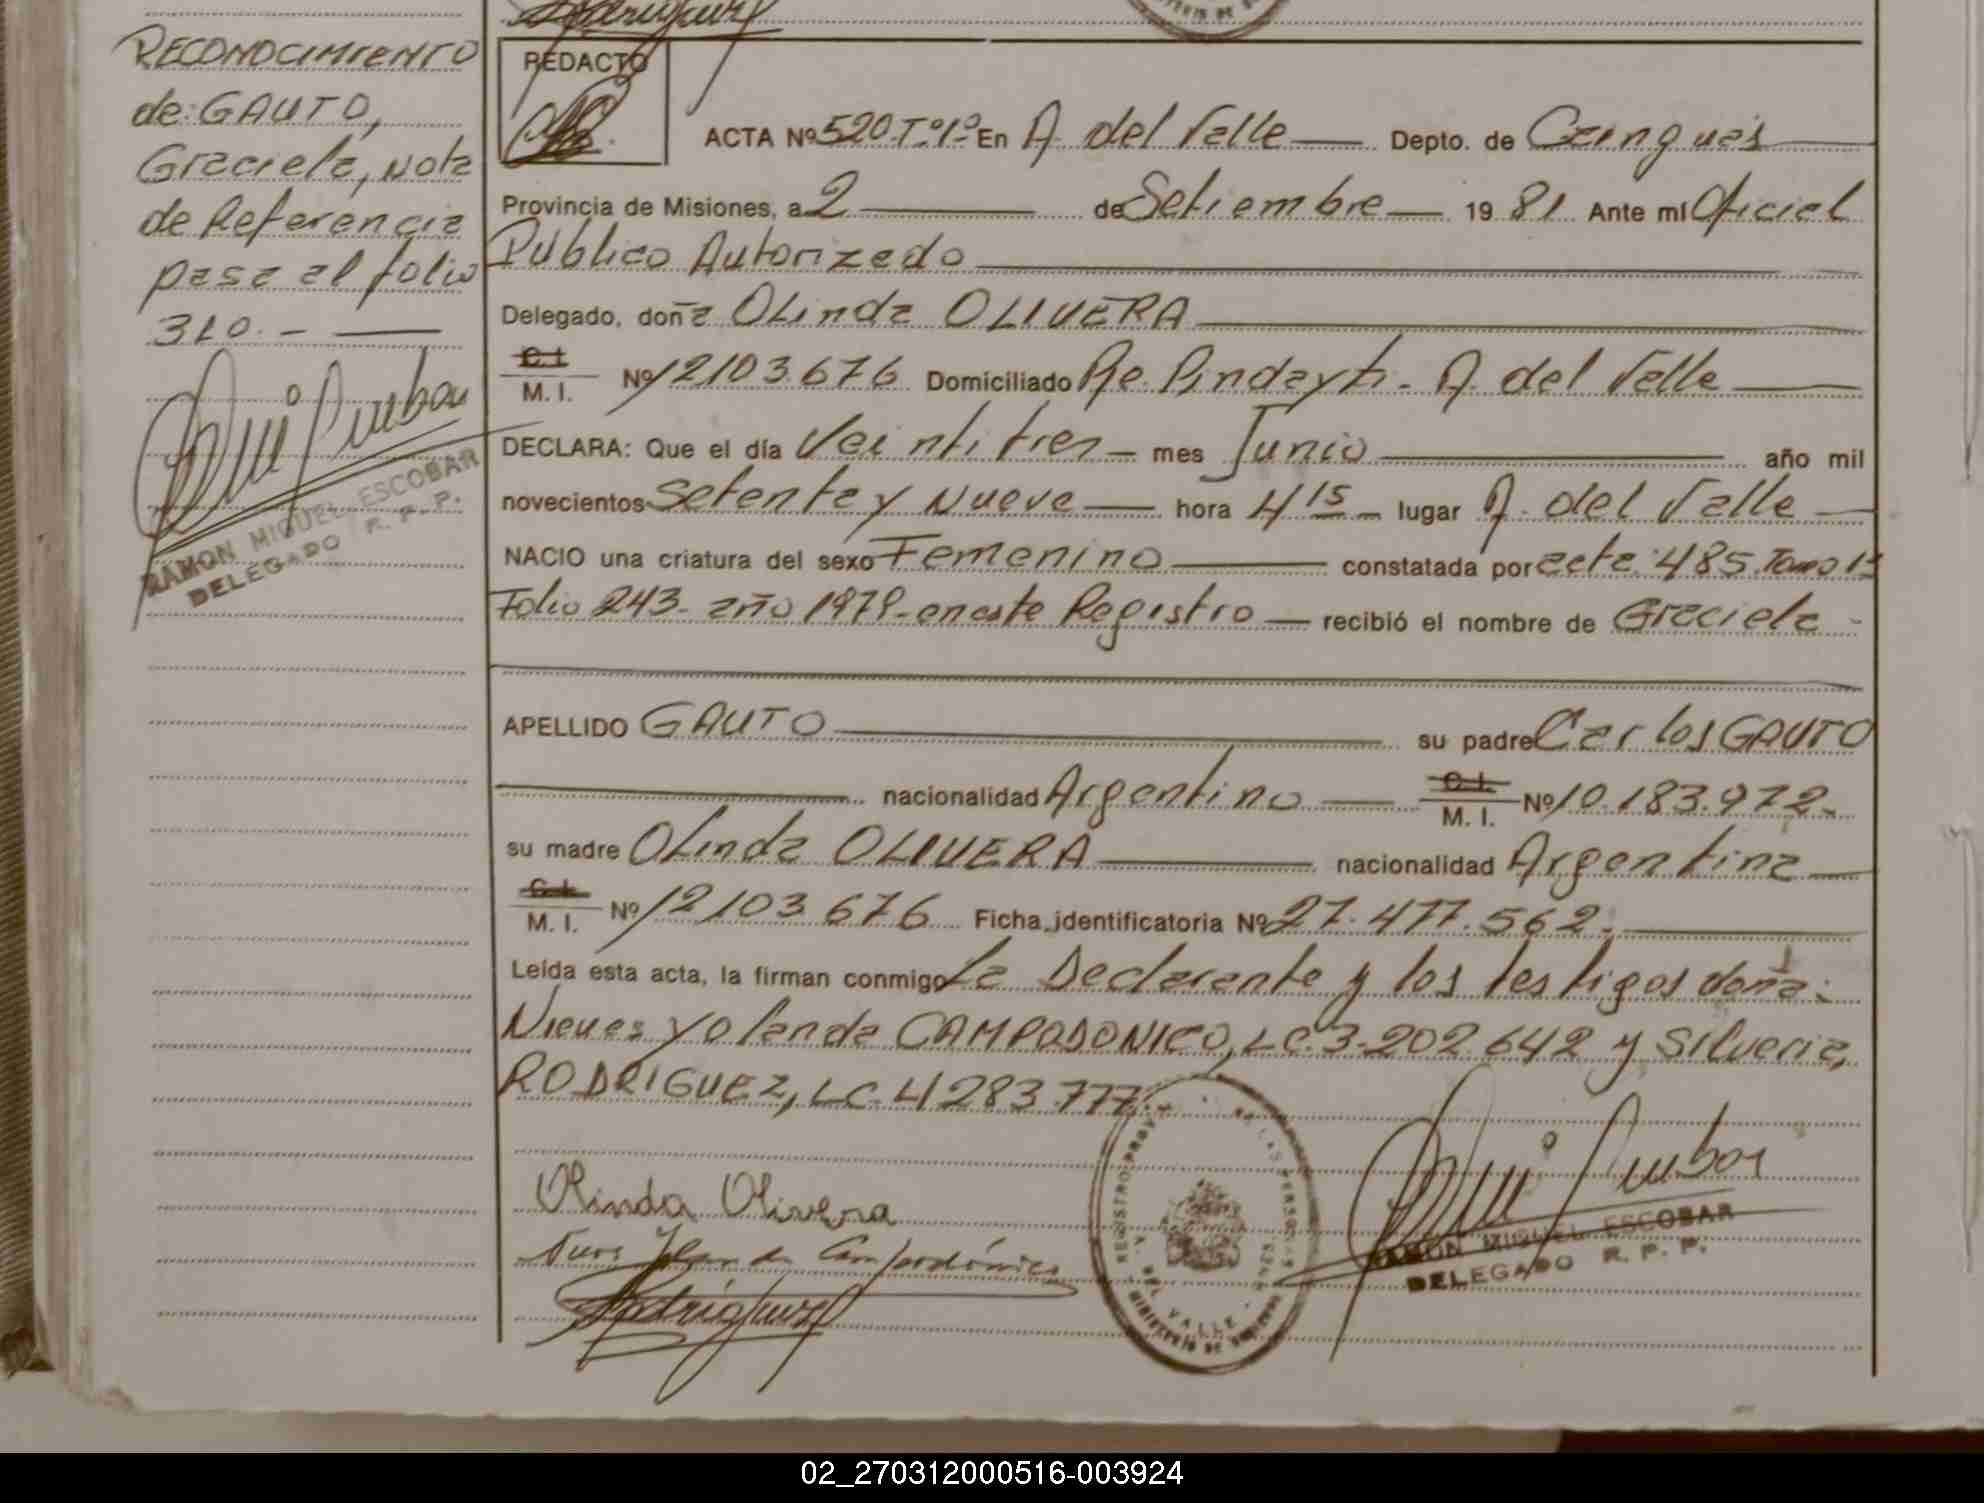 RECONOCIMIENTO
de: GAUTO,
Graciela, Nota
de Referencia
pasa al folio
310.-
RAMON MIGUEL ESCOBAR
DELEGADO R. P. P.
Rodriguez
REDACTO
ACTA Nº 520-Tº1º- En A. del Valle Depto. de Cainguás
Provincia de Misiones, a 2 de Setiembre 19 81 Ante mí Oficial
Público Autorizado
Delegado, doña Olinda OLIVERA
C.I.
M. I. Nº 12103.676 Domiciliado Pje. Pindayti - A. del Valle
DECLARA: Que el día Veintitres - mes Junio año mil
novecientos Setenta y Nueve hora 4 15 - lugar A. del Valle
NACIO una criatura del sexo Femenino constatada por acta: 485. Tomo 1º
Folio 243- año 1979- en este Registro recibió el nombre de Graciela -
APELLIDO GAUTO su padre Carlos GAUTO
nacionalidad Argentino C.I.
M. I. Nº 10.183.972.-
su madre Olinda OLIVERA nacionalidad Argentina
C.I.
M. I. Nº 12103.676 Ficha identificatoria Nº 27.477.562.
Leída esta acta, la firman conmigo La Declarante y los testigos doña:
Nieves Yolanda CAMPODONICO, LC.3.202.642 y Silveria,
RODRIGUEZ, LC.4283.777.
Olinda Olivera
Nieves Yolanda Campodónico
Rodriguez
REGISTRO PROV. DE LAS PERSONAS
A. DEL VALLE
MINISTERIO DE GOBIERNO
RAMON MIGUEL ESCOBAR
DELEGADO R. P. P.
02_270312000516-003924